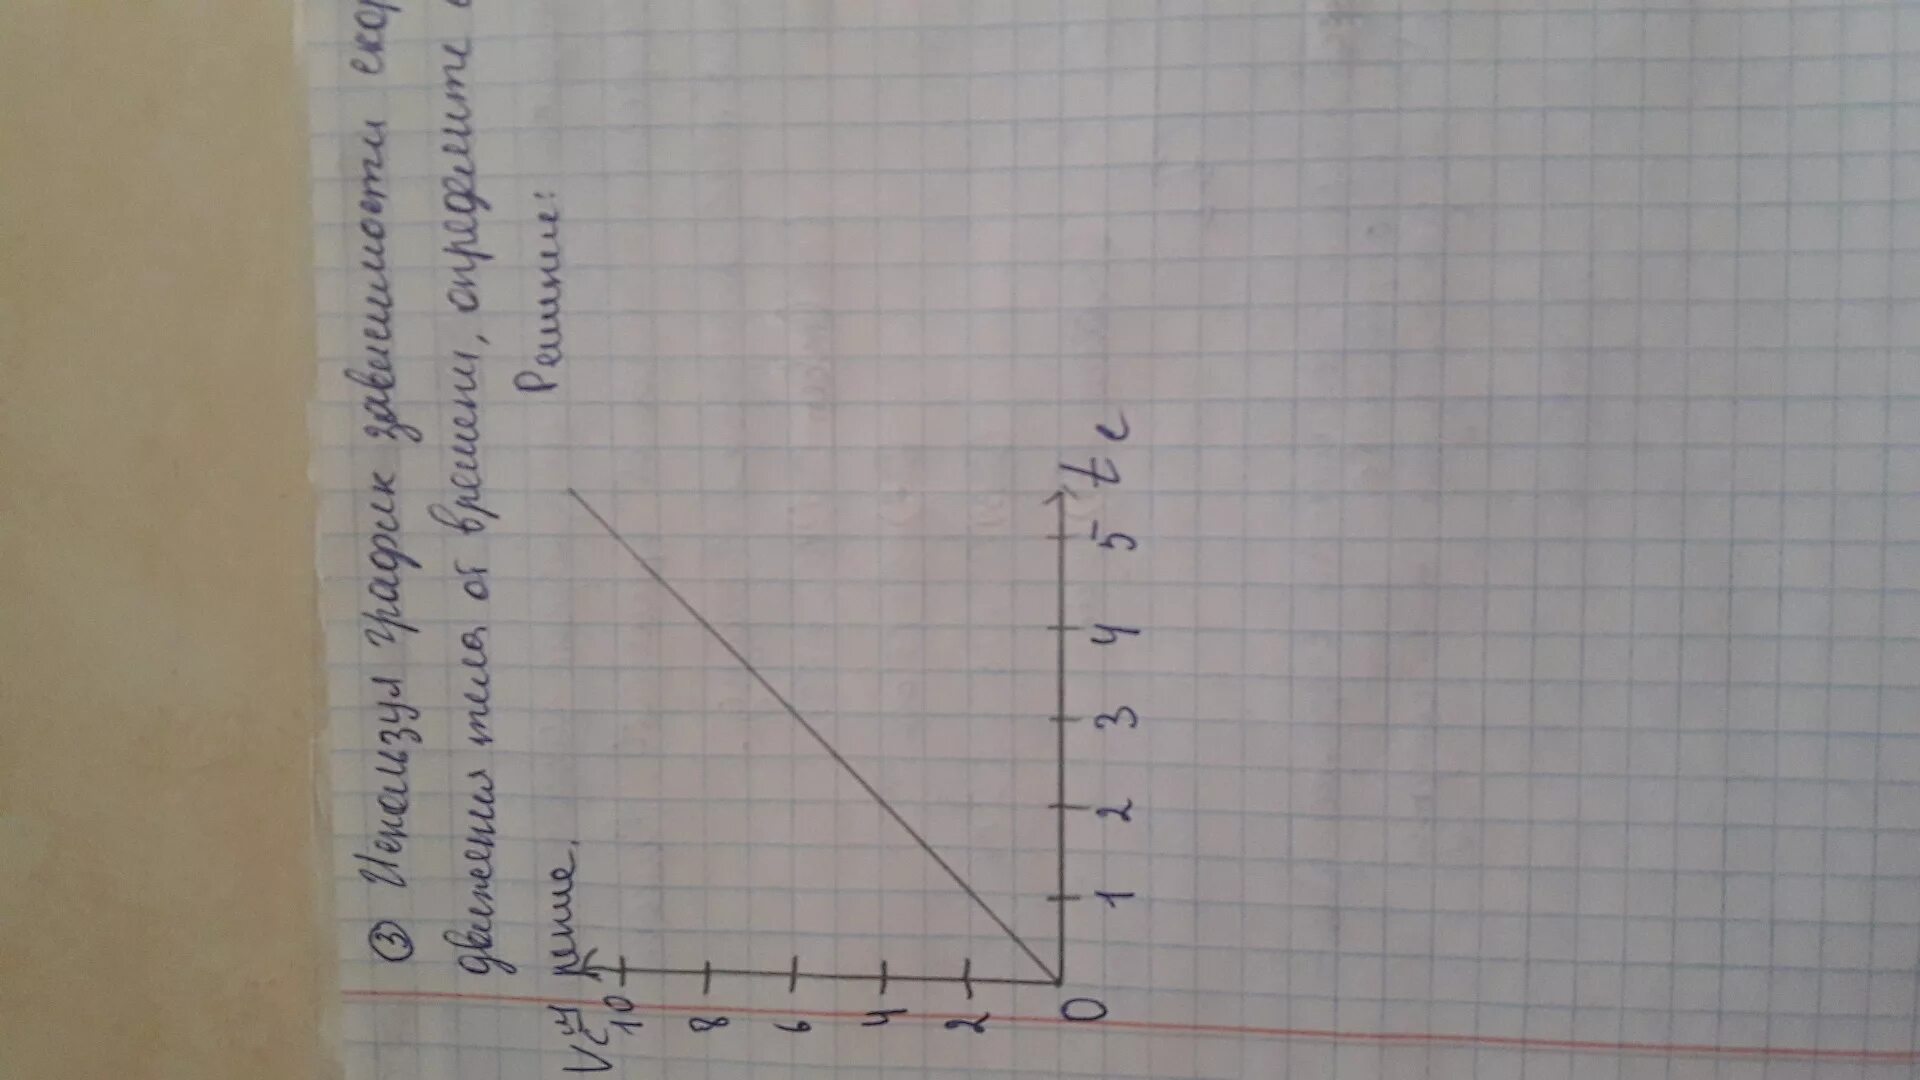 ③ Используя график зависимости скор
движения тела от времени, определите е
рение.
Решение:
V м/с
10
8
6
4
2
0
1 2 3 4 5 t с